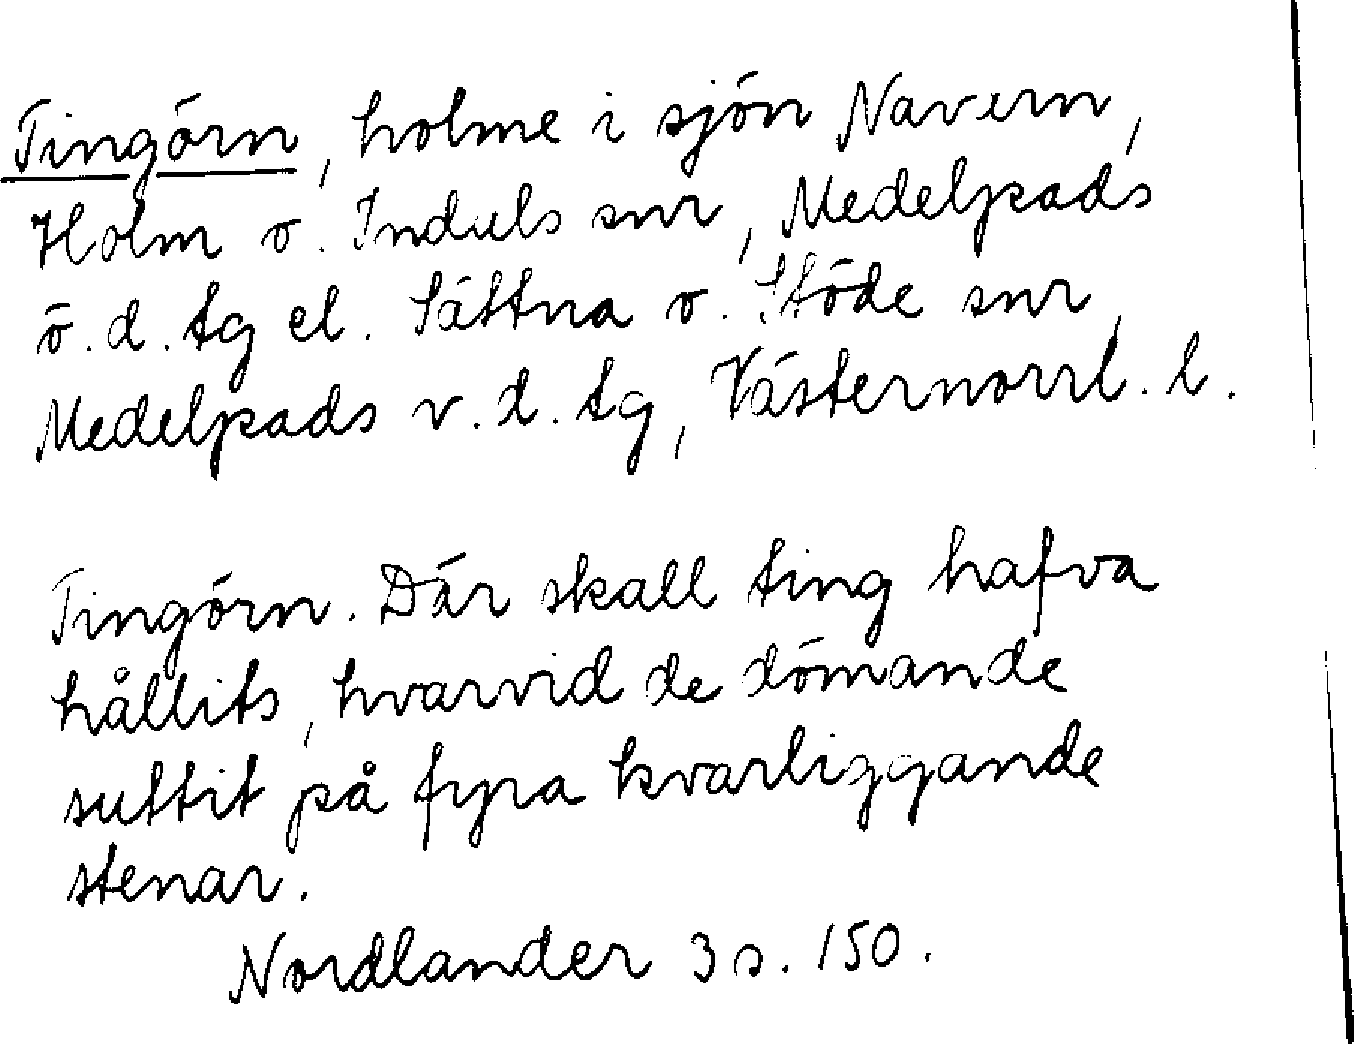 Tingörn, holme i sjön Navern,
Holm o. Indals snr, Medelpads
ö.d.tg el. Sättna o. Stöde snr,
Medelpads v.d.tg, Västernorrl. l.
Tingörn. Där skall ting hafva
hållits, hvarvid de dömande
suttit på fyra kvarliggande
stenar.
Nordlander 3 s. 150.